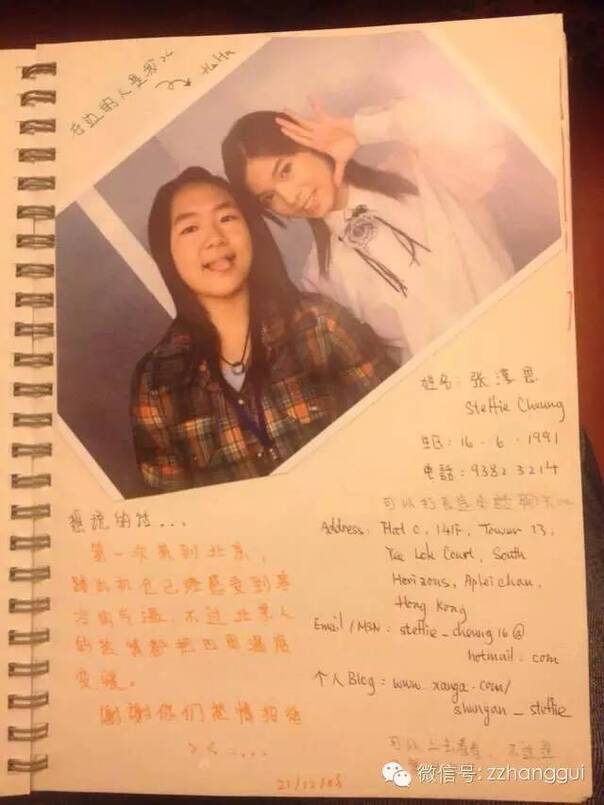 右边的人是我
HaHa
姓名：张淳恩
Steffie Cheung
生日：16.6.1991
電話：9382 3214
可以打
想说的话...
第一次来到北京，
踏出机仓已经感受到寒
冷的气温，不过北京人
的热情都把四周温度
变暖。
謝謝你们热情招待
>< ....
21/12/08
Address: Flat C, 14/F, Tower 13,
Yee Lok Court, South
Horizons, Aplei chau,
Hong Kong
Email/MSN: steffie_cheung16@
hotmail.com
个人Blog: www.xanga.com/
shunyan_steffie
可以上去看看，不过是
微信号: zzhanggui